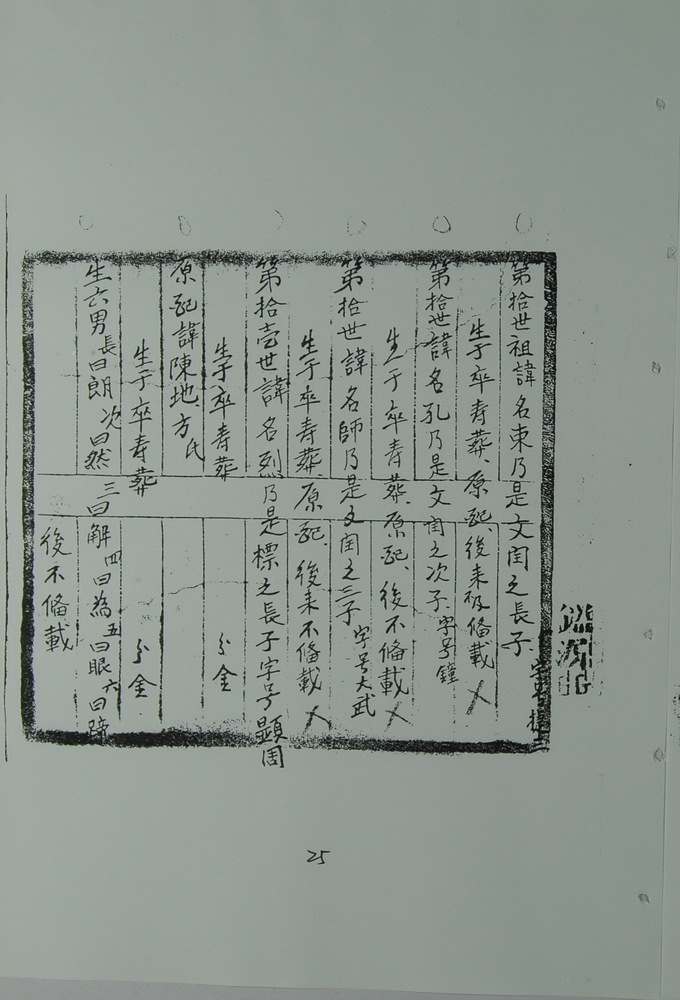 第拾世祖諱名東乃是文閏之長子字号
生于卒寿葬原配後未及俻載
第拾世諱名孔乃是文閏之次子字号鐘
生于卒寿葬原配後不俻載
第拾世諱名師乃是文閏之三子字号大武
生于卒寿葬原配後未不俻載
第拾壱世諱名烈乃是標之長子字号顕周
生于卒寿葬 分金
原配諱陳地方氏
生于卒寿葬 分金
生六男長曰朗次曰然三曰解四曰為五曰眠六曰
後不俻載
25